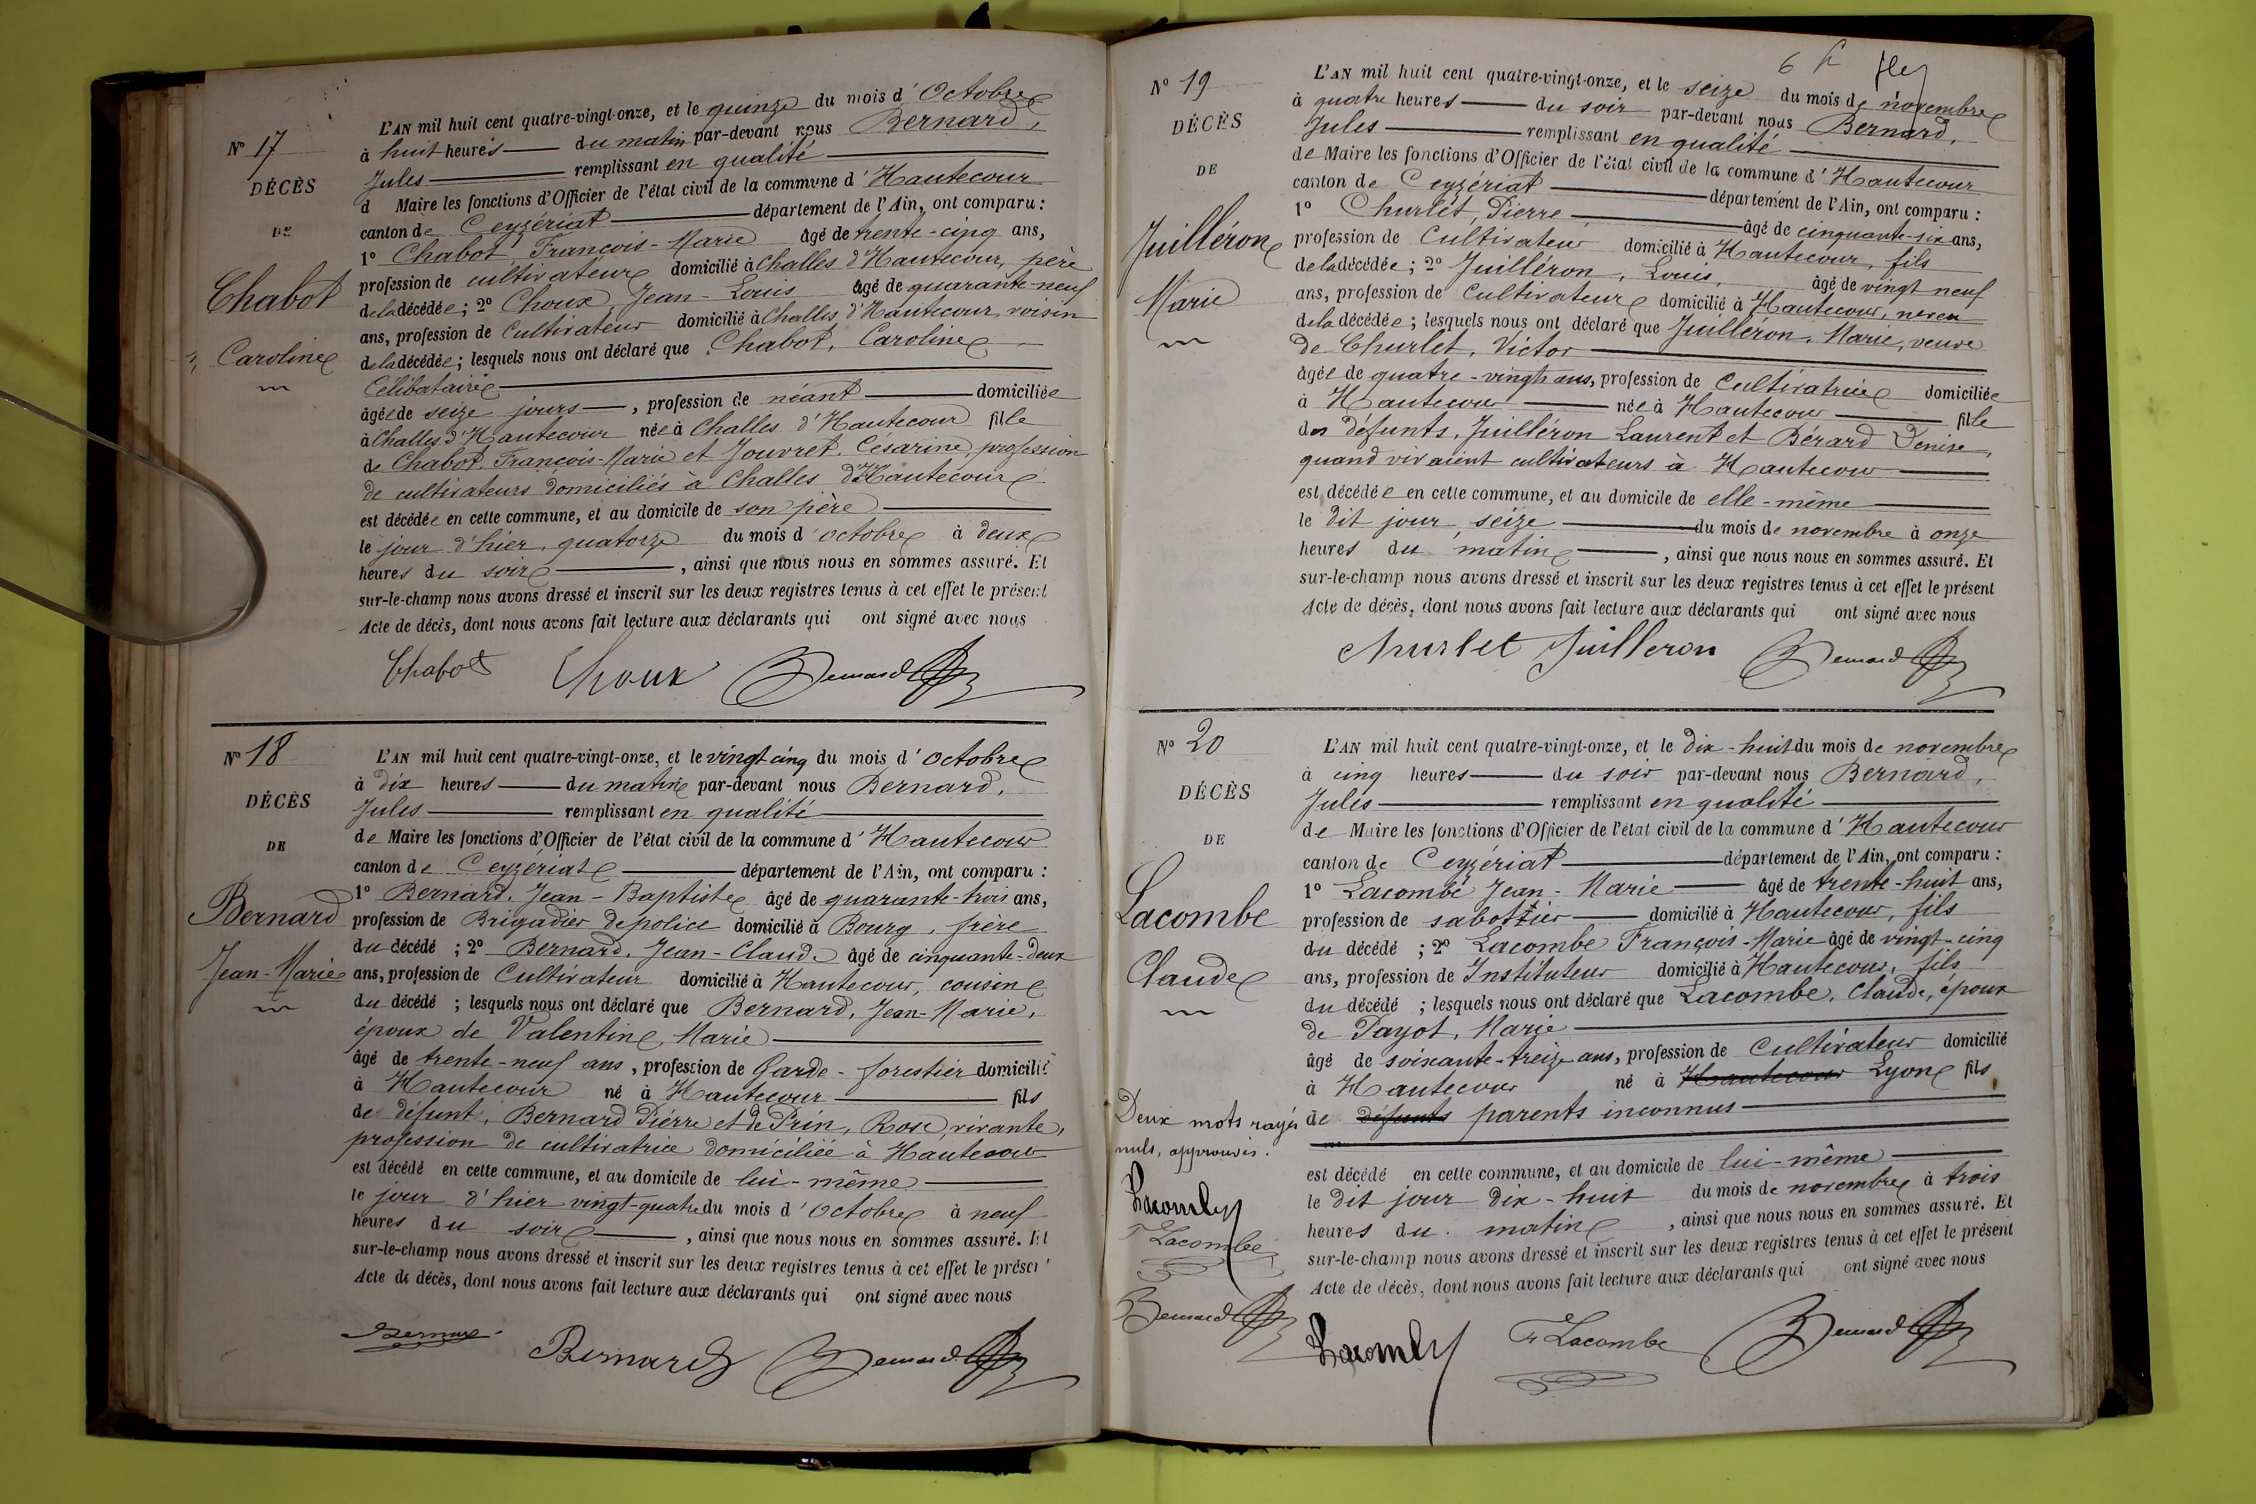 N° 17
DÉCÈS
DE
Chabot
Caroline
L'AN mil huit cent quatre-vingt-onze, et le quinze du mois d'Octobre
à huit heures du matin par-devant nous Bernard,
Jules remplissant en qualité
d Maire les fonctions d'Officier de l'état civil de la commune d'Hautecour
canton de Ceyzériat département de l'Ain, ont comparu :
1° Chabot François-Marie âgé de trente-cinq ans,
profession de cultivateur domicilié à Challes d'Hautecour, père
de la décédée ; 2° Choux Jean-Louis âgé de quarante-neuf
ans, profession de Cultivateur domicilié à Challes d'Hautecour, voisin
de la décédée ; lesquels nous ont déclaré que Chabot, Caroline
Célibataire
âgée de seize jours, profession de néant domiciliée
à Challes d'Hautecour née à Challes d'Hautecour fille
de Chabot, François-Marie et Jouvret, Césarine, profession
de cultivateurs domiciliés à Challes d'Hautecour
est décédée en cette commune, et au domicile de son père
le jour d'hier, quatorze du mois d'octobre à deux
heures du soir, ainsi que nous nous en sommes assuré. Et
sur-le-champ nous avons dressé et inscrit sur les deux registres tenus à cet effet le présent
Acte de décès, dont nous avons fait lecture aux déclarants qui ont signé avec nous
Chabot Choux Bernard
N° 18
DÉCÈS
DE
Bernard
Jean-Marie
L'AN mil huit cent quatre-vingt-onze, et le vingt cinq du mois d'octobre
à dix heures du matin par-devant nous Bernard,
Jules remplissant en qualité
de Maire les fonctions d'Officier de l'état civil de la commune d'Hautecour
canton de Ceyzériat département de l'Ain, ont comparu :
1° Bernard, Jean-Baptiste âgé de quarante-trois ans,
profession de Brigadier de police domicilié à Bourg, frère
du décédé ; 2° Bernard, Jean-Claude âgé de cinquante-deux
ans, profession de Cultivateur domicilié à Hautecour, cousin
du décédé ; lesquels nous ont déclaré que Bernard, Jean-Marie,
époux de Valentin, Marie
âgé de trente-neuf ans, profession de Garde-forestier domicilié
à Hautecour né à Hautecour fils
de défunt, Bernard Pierre et de Prin, Rose, vivante,
profession de cultivatrice domiciliée à Hautecour
est décédé en cette commune, et au domicile de lui-même
le jour d'hier vingt-quatre du mois d'octobre à neuf
heures du soir, ainsi que nous nous en sommes assuré. Et
sur-le-champ nous avons dressé et inscrit sur les deux registres tenus à cet effet le présent
Acte de décès, dont nous avons fait lecture aux déclarants qui ont signé avec nous
Bernard Bernard Bernard
6
N° 19
DÉCÈS
DE
Juilléron
Marie
L'AN mil huit cent quatre-vingt-onze, et le seize du mois de novembre
à quatre heures du soir par-devant nous Bernard,
Jules remplissant en qualité
de Maire les fonctions d'Officier de l'état civil de la commune d'Hautecour
canton de Ceyzériat département de l'Ain, ont comparu :
1° Churlet, Pierre âgé de cinquante-six ans,
profession de Cultivateur domicilié à Hautecour, fils
de la décédée ; 2° Juilléron, Louis, âgé de vingt neuf
ans, profession de Cultivateur domicilié à Hautecour, neveu
de la décédée ; lesquels nous ont déclaré que Juilléron, Marie, veuve
de Churlet, Victor
âgée de quatre-vingts ans, profession de Cultivatrice domiciliée
à Hautecour née à Hautecour fille
des défunts, Juilléron Laurent et Bérard Denise,
quand vivaient cultivateurs à Hautecour
est décédée en cette commune, et au domicile de elle-même
le dit jour, seize du mois de novembre à onze
heures du matin, ainsi que nous nous en sommes assuré. Et
sur-le-champ nous avons dressé et inscrit sur les deux registres tenus à cet effet le présent
Acte de décès, dont nous avons fait lecture aux déclarants qui ont signé avec nous
Churlet Juilleron Bernard
N° 20
DÉCÈS
DE
Lacombe
Claude
L'AN mil huit cent quatre-vingt-onze, et le dix-huit du mois de novembre
à cinq heures du soir par-devant nous Bernard,
Jules remplissant en qualité
de Maire les fonctions d'Officier de l'état civil de la commune d'Hautecour
canton de Ceyzériat département de l'Ain, ont comparu :
1° Lacombe Jean-Marie âgé de trente-huit ans,
profession de sabottier domicilié à Hautecour, fils
du décédé ; 2° Lacombe François-Marie âgé de vingt-cinq
ans, profession de Instituteur domicilié à Hautecour, fils
du décédé ; lesquels nous ont déclaré que Lacombe, Claude, époux
de Payot, Marie
âgé de soixante-treize ans, profession de Cultivateur domicilié
à Hautecour né à Hautecour Lyon fils
de défunts parents inconnus
est décédé en cette commune, et au domicile de lui-même
le dit jour dix-huit du mois de novembre à trois
heures du matin, ainsi que nous nous en sommes assuré. Et
sur-le-champ nous avons dressé et inscrit sur les deux registres tenus à cet effet le présent
Acte de décès, dont nous avons fait lecture aux déclarants qui ont signé avec nous
Deux mots rayés
nuls, approuvés.
Lacombe
F Lacombe
Bernard
Lacombe F Lacombe Bernard